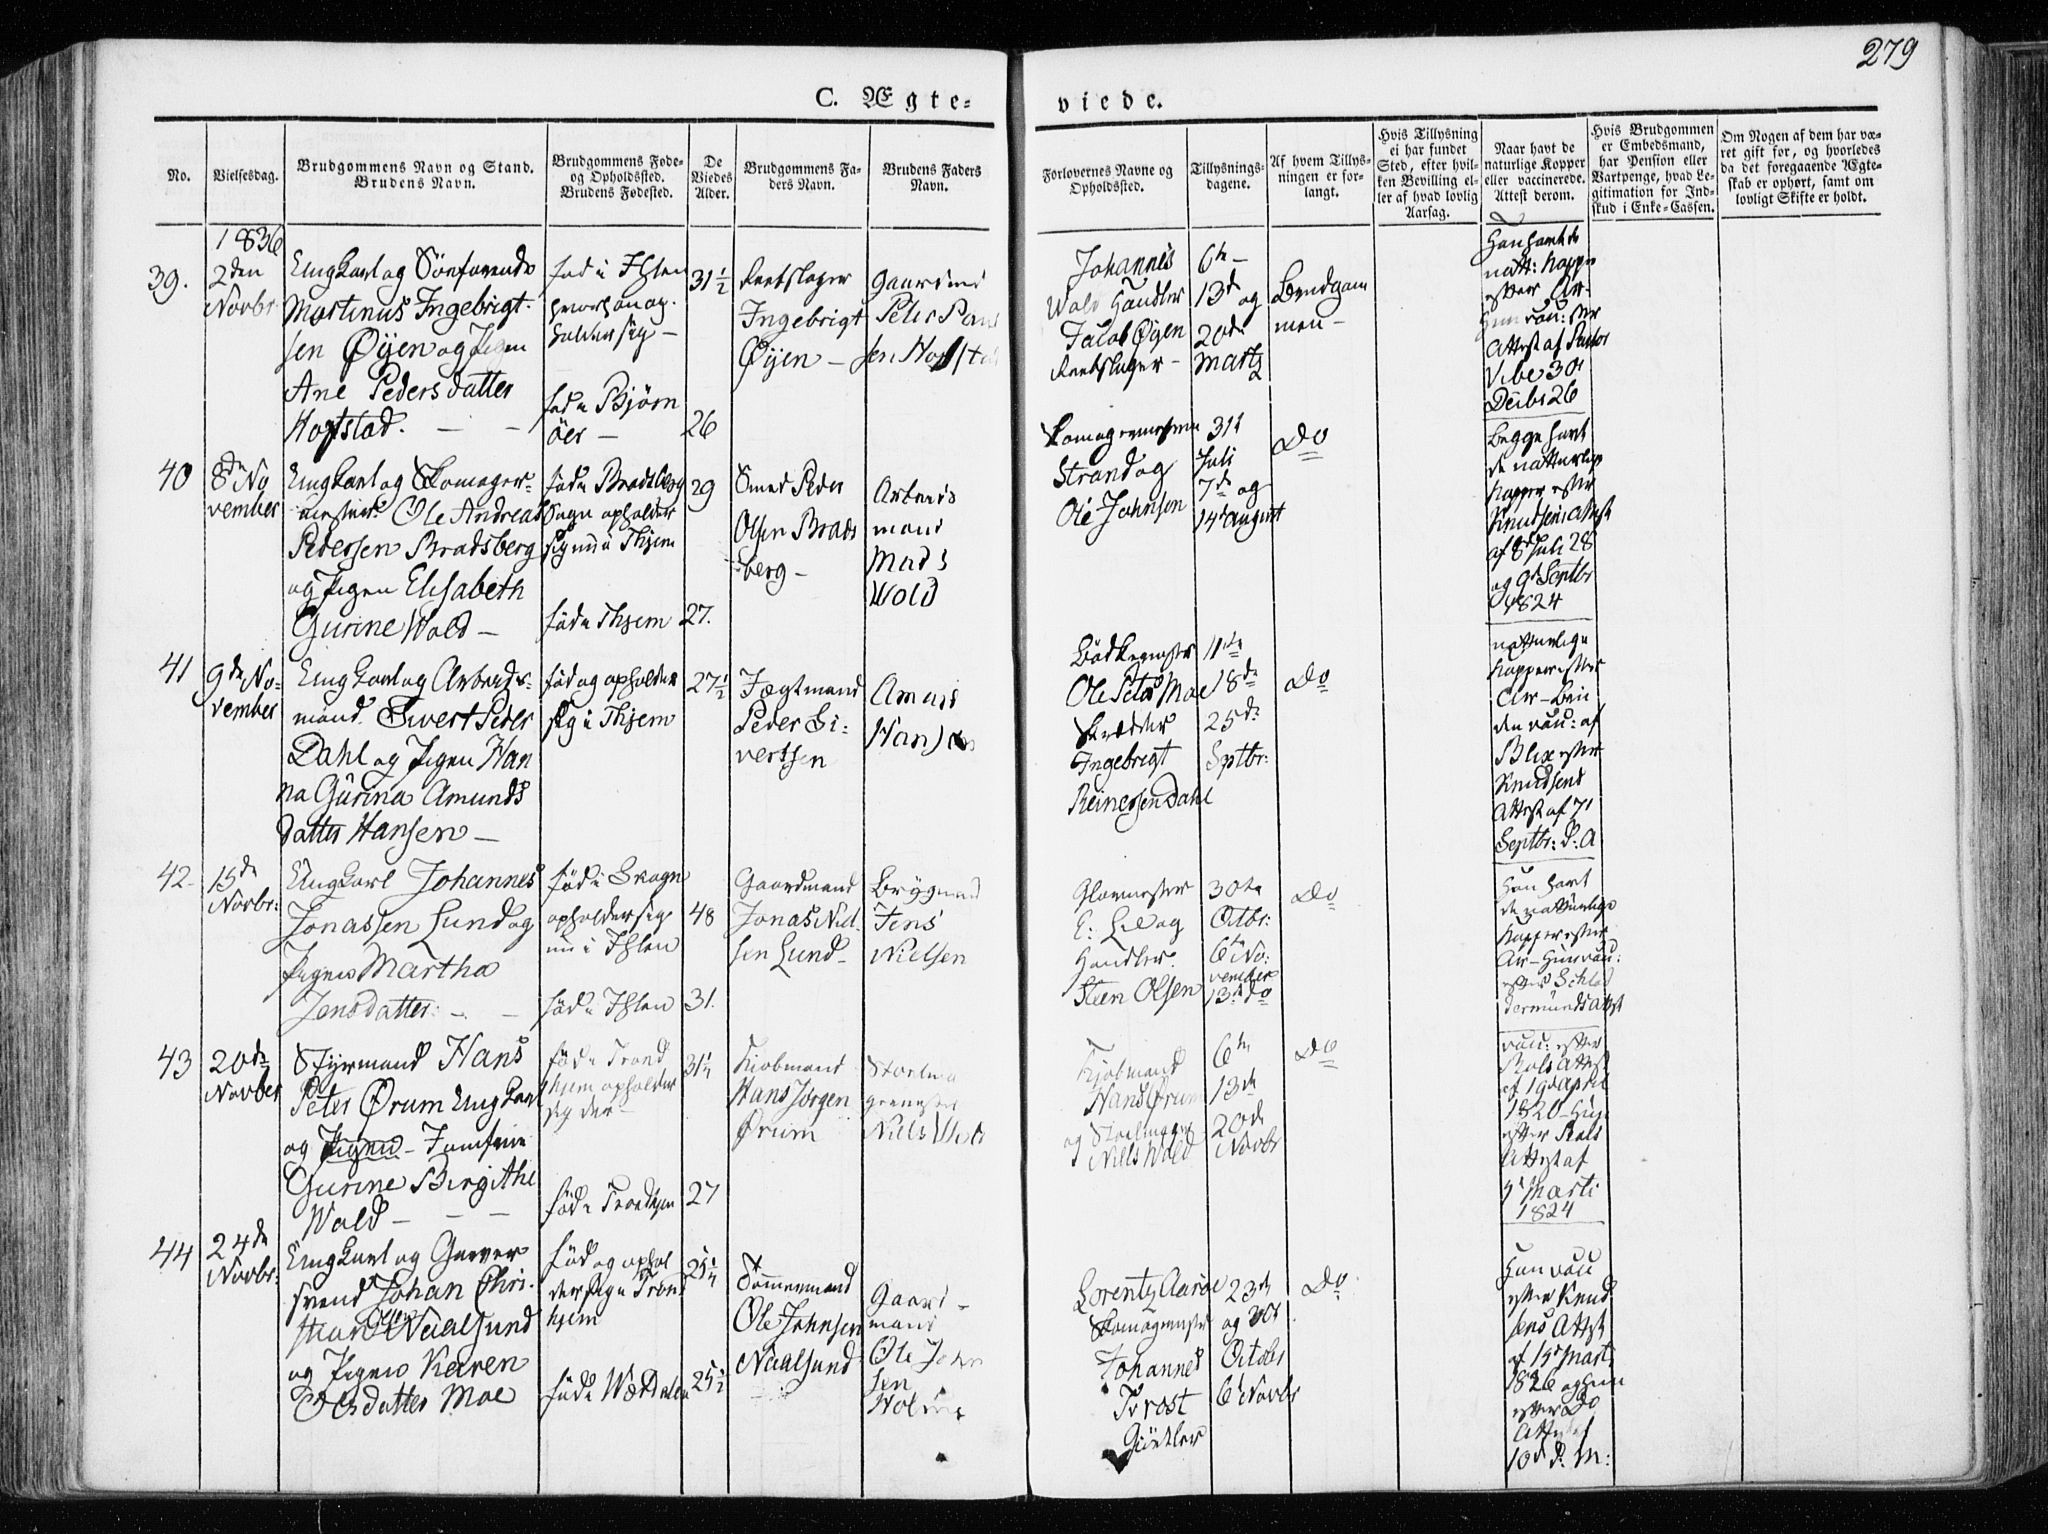 279
C. Ægte-
viede.
No.
Vielsesdag.
Brudgommens Navn og Stand.
Brudens Navn.
Brudgommens Føde-
og Opholdssted.
Brudens Fødested.
De
Viedes
Alder.
Brudgommens Fa-
ders Navn.
Brudens Faders
Navn.
Forlovernes Navne og
Opholdssted.
Tillysnings-
dagene.
Af hvem Tillys-
ningen er for-
langt.
Hvis Tillysning
ei har fundet
Sted, efter hvil-
ken Bevilling el-
ler af hvad lovlig
Aarsag.
Naar havt de
naturlige Kopper
eller vaccinerede.
Attest derom.
Hvis Brudgommen
er Embedsmand,
har Pension eller
Vartpenge, hvad Le-
gitimation for Ind-
skud i Enke-Cassen.
Om Nogen af dem har væ-
ret gift før, og hvorledes
da det foregaaende Ægte-
skab er ophørt, samt om
lovligt Skifte er holdt.
1836
39.
2den
Novbr.
Ungkarl og
Martinus Ingebrigt-
sen Øyen og Pigen
Ane Pedersdatter
Hofstad.
fød i Ihlen
hvor han op-
holder sig
fød i Bjørn
öer
31½
26
Reebslager
Ingebrigt
Øyen
Gaardmd
Peter
sen
Johannes
Wold Handler
Jacob Øyen
Reebslager
6te
13de og
20de
Martz
Brudgom
men
Han havt de
natt: Kopper
efter Ar-
Hun vac: efter
Attest af Pastor
Vibe 30t
Decbr 26
40
8de No
vember
Ungkarl og Skomager-
mester Ole Andreas
Pedersen Bradsberg
og Pigen Elisabeth
Gurine Wold
fød i Bradsberg
Sogn opholder
sig nu i Thjem
fød i Thjem
29
27.
Smed Peder
Olsen Brads
berg
Arbeids
mand
Mads
Wold
Skomagermester
Strand og
Ole Johnsen
31t
Juli
7de og
14d August
Do
Begge havt
de naturlige
Kopper efter
Knudsens Attest
af 8d Juli 28
og 9d Septbr
1824
41
9de No-
vember
Ungkarl og Arbeids-
mand Sivert Peder
Dahl og Pigen Han
na Gurina Amunds
datter Hansen
fød og opholder
sig i Thjem
27½
Jægtmand
Peder Si-
vertsen
Amund
Hansen
Bødkermester
Ole Peter Moe
Skrædder
Ingebrigt
Reinersen Dahl
11te
18de
25de
Septbr:
Do
naturlige
Kopper efter
Ar-
den vac: af
Blix efter
Knudsens
Attest af 7
Septbr: d: A
42
15de
Novbr:
Ungkarl Johannes
Jonassen Lund og
Pigen Martha
Jensdatter
fød i Skogn
opholder sig
nu i Ihlen
fød i Ihlen
48
31.
Gaardmand
Jonas Niel-
sen Lund
Bryggemd
Jens
Nielsen
Glarmester
E: Lid og
Handler
Steen Olsen
30te
Octbr:
6te No:
vember
13de do
Do
Han havt
de naturlige
Kopper efter
Ar- Hun vac:
efter
43
20de
Novbr
Styrmand Hans
Peter Ørum Ungkarl
og Pigen Jomfrue
Gurine Birgithe
Wold
fød i Trond
hjem opholder
sig der
fød i Trondhjem
31¼
27
Kiøbmand
Hans Jørgen
Ørum
Niels Wold
Kjøbmand
Hans Ørum
og
Niels Wold
6te
13de
20de
Novbr
Do
vac: efter
Attest
af 19d April
1820 Hun
efter
Attest af
Marti
1824
44
24de
Novbr:
Ungkarl og Garver
svend Johan Chri-
stian Olsen Naalsund
og Pigen Karen
Olsdatter Moe
fød og ophol
der sig i Trond
hjem
fød i Wærdalen
25¼
25½
Tømmermand
Ole Johnsen
Naalsund
Gaard-
mand
Ole John
sen
Lorentz Aarøe
Skomagermester
Johannes
Trost
Giørtler
23de
og 30t
October
6t Novbr
Do
Han vac
efter Knud
sens Attest
af 15d Marts
1826 og hun
efter Do
Attest af
10d d: M: